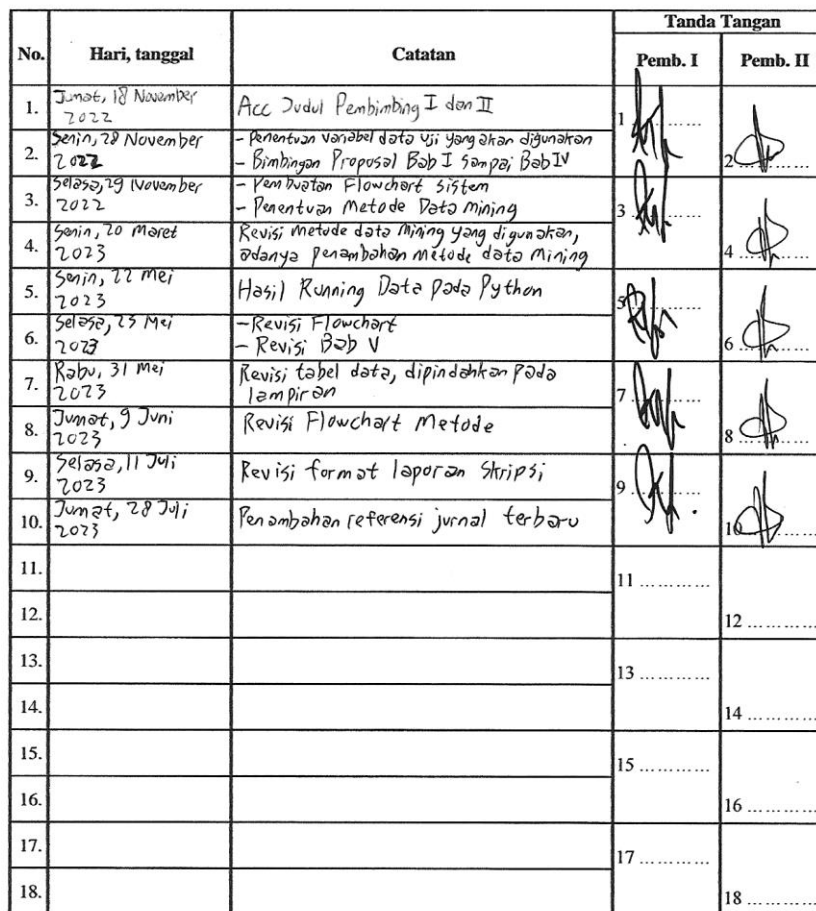 Tanda Tangan
No. Hari, tanggal Catatan Pemb. I Pemb. II
1. Jumat, 18 November Acc Judul Pembimbing I dan II 1
2022
2. Senin, 28 November - Penentuan variabel data uji yang akan digunakan
2022 - Bimbingan Proposal Bab I sampai Bab IV 2............
3. Selasa, 29 November - Pembuatan Flowchart sistem 3............
2022 - Penentuan Metode Data Mining
4. Senin, 20 Maret Revisi metode data Mining yang digunakan,
2023 adanya penambahan metode data Mining 4............
5. Senin, 22 Mei Hasil Running Data pada Python 5............
2023
6. Selasa, 23 Mei - Revisi Flowchart
2023 - Revisi Bab V 6............
7. Rabu, 31 Mei Revisi tabel data, dipindahkan pada 7............
2023 lampiran
8. Jumat, 9 Juni Revisi Flowchart Metode 8............
2023
9. Selasa, 11 Juli Revisi format laporan Skripsi 9............
2023
10. Jumat, 28 Juli Penambahan referensi jurnal terbaru 10............
2023
11. 11 ............
12. 12 ............
13. 13 ............
14. 14 ............
15. 15 ............
16. 16 ............
17. 17 ............
18. 18 ............